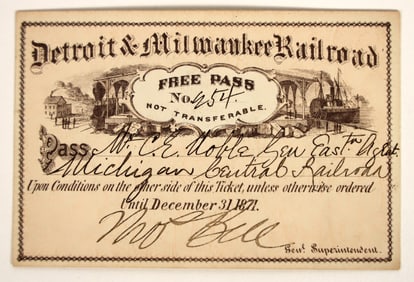 Detroit & Milwaukee Railroad
FREE PASS
No. 954.
NOT TRANSFERABLE.
Pass Mr. C. E. Noble Gen East'n Agent
Michigan Central Railroad
Upon Conditions on the other side of this Ticket, unless otherwise ordered
Until December 31, 1871.
Thos Bell
Gen'l Superintendent.